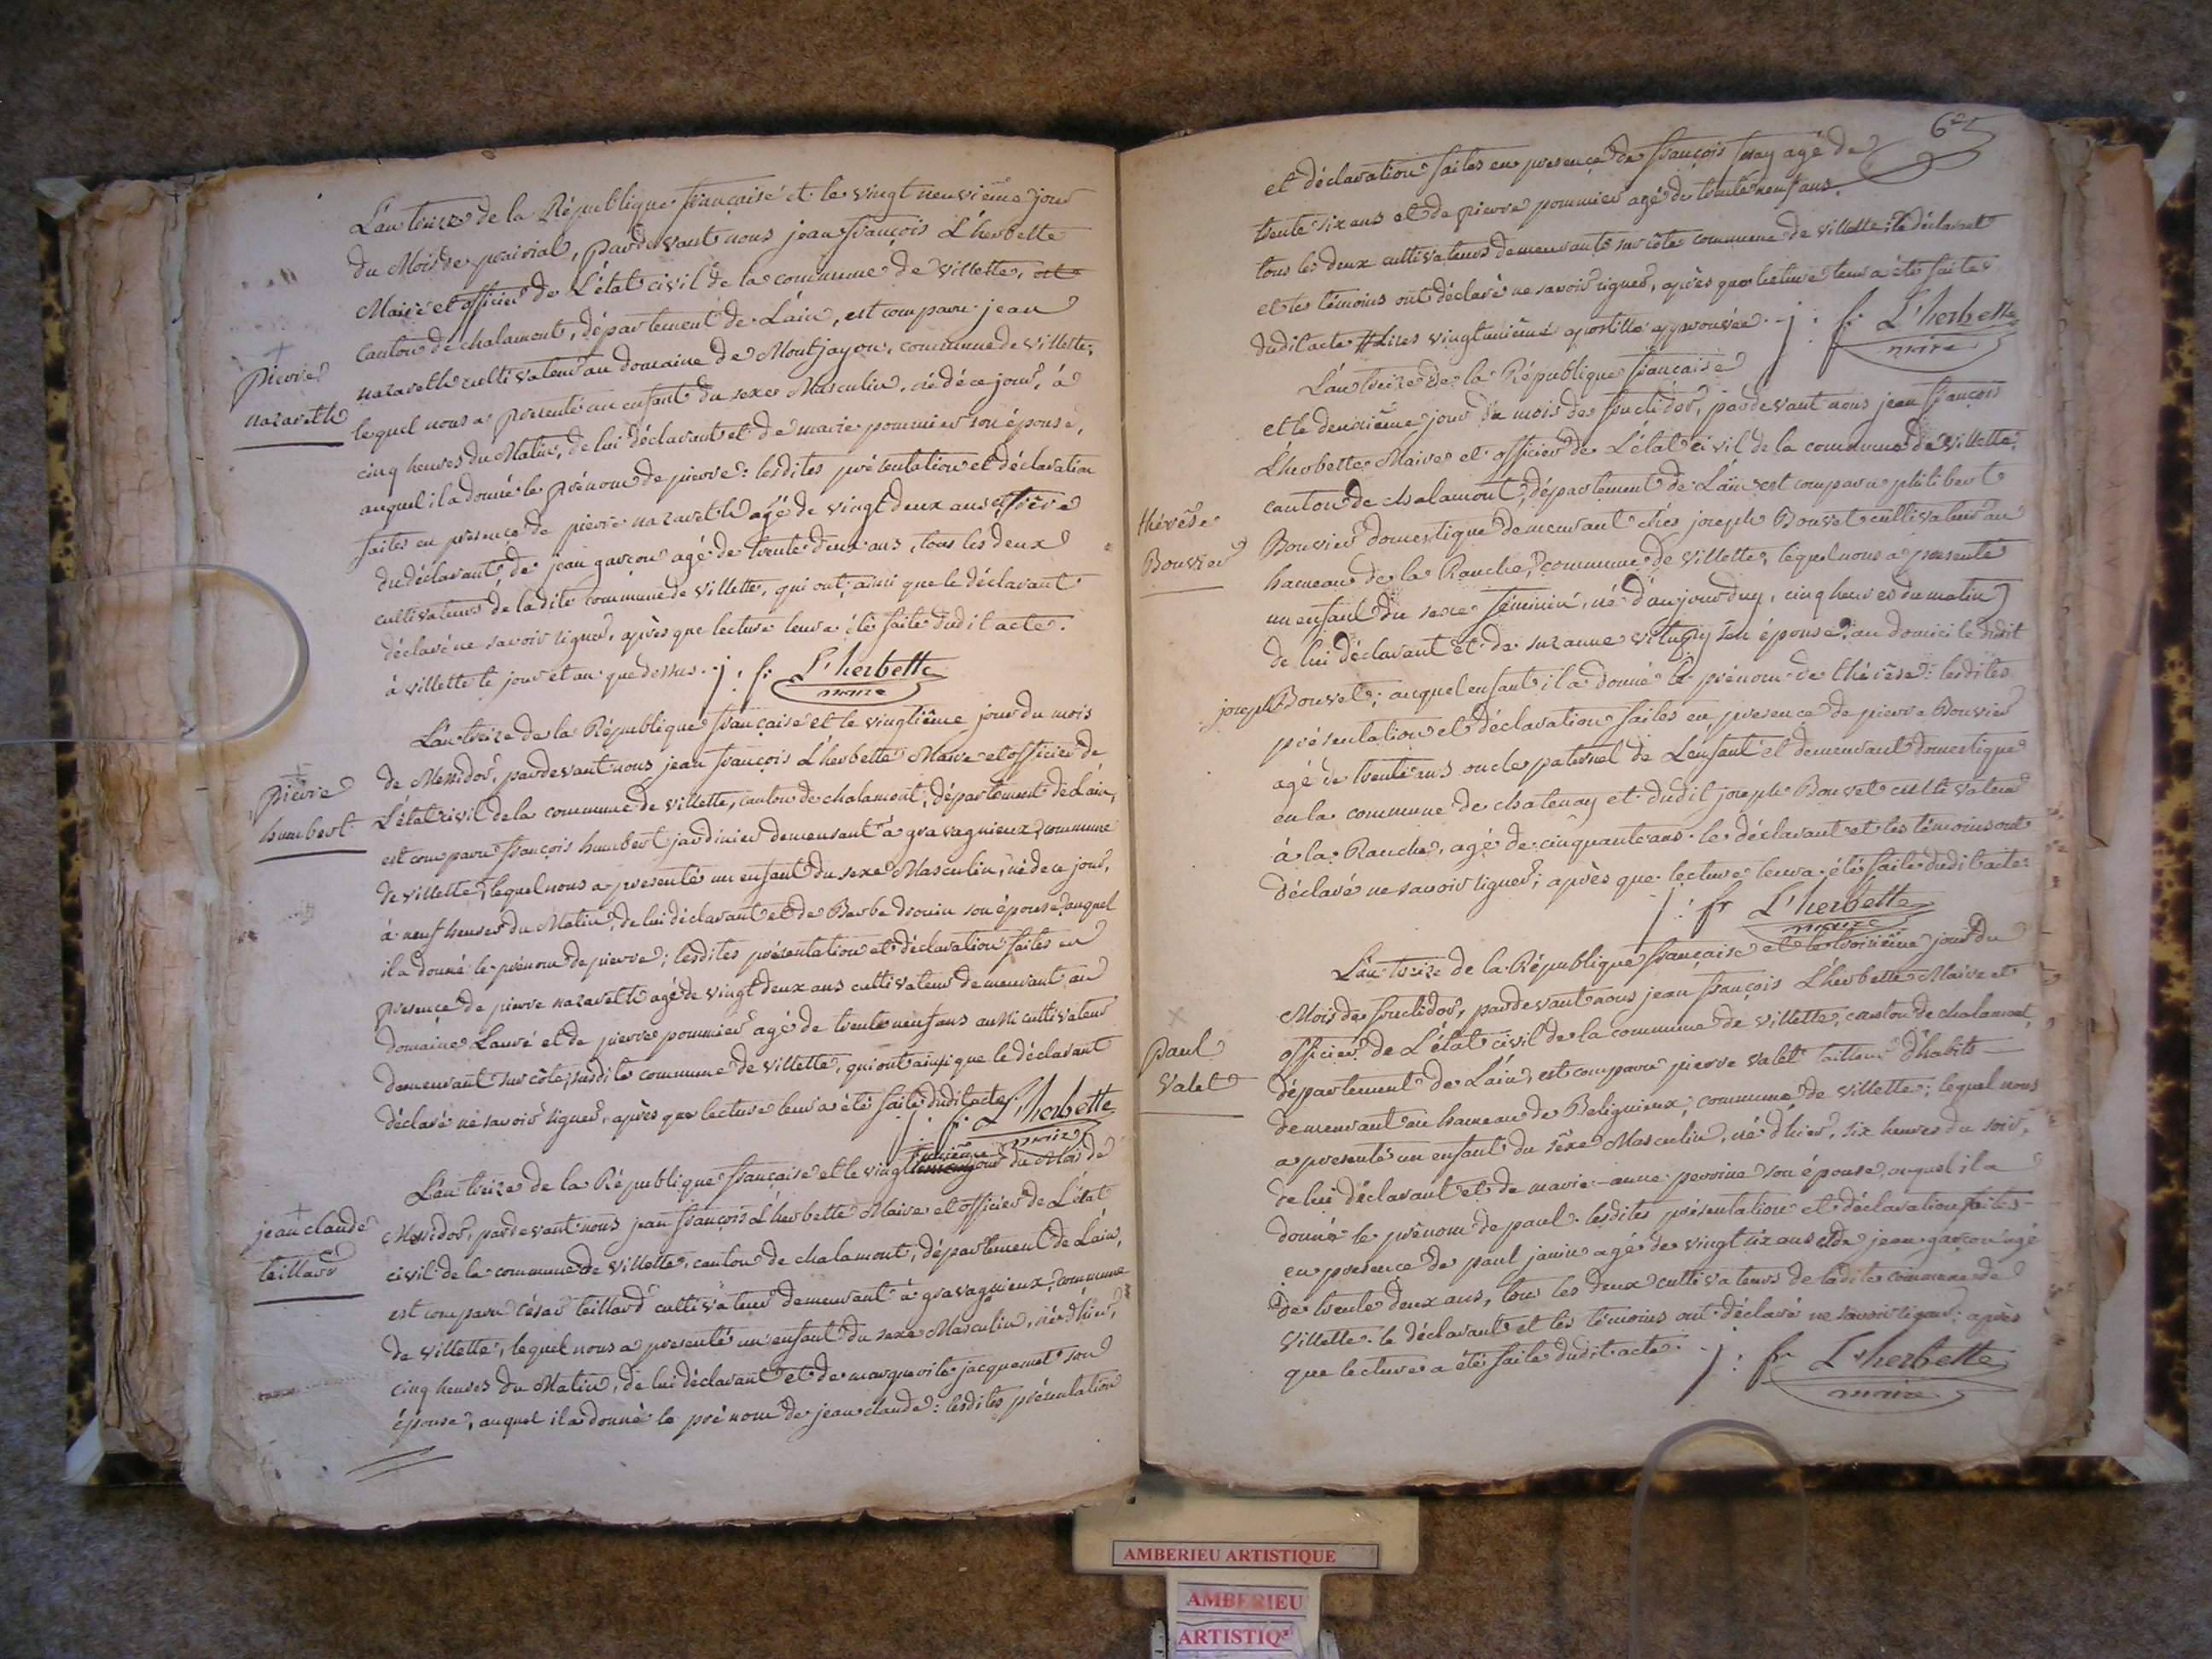 L'an treize de la République française et le vingt neuvième jour
du Mois de prairial, pardevant nous jean françois L'herbette
Maire et officier de L'état civil de la commune de villette,
canton de chalamont, département de L'ain, est comparu jean
nazareth cultivateur au domaine de Montjayon, commune de villette,
pierre
nazareth
lequel nous a présenté un enfant du sexe Masculin, né de ce jour, à
cinq heures du Matin, de lui déclarant et de marie pommier son épouse,
auquel il a donné le prénom de pierre: lesdites présentation et déclaration
faites en présence de pierre nazareth agé de vingt deux ans et frère
du déclarant, de jean garçon agé de trente deux ans, tous les deux
cultivateurs de ladite commune de villette, qui ont, ainsi que le déclarant
déclaré ne savoir signer, après que lecture leur a été faite dudit acte.
à villette le jour et an que dessus. j: f: L'herbette
maire
L'an treize de la République française et le vingtième jour du mois
de Messidor, pardevant nous jean françois L'herbette Maire et officier de
pierre
humbert
L'état civil de la commune de villette, canton de chalamont, département de L'ain,
est comparu françois humbert jardinier demeurant à gravagnieux, commune
de villette, lequel nous a présenté un enfant du sexe Masculin, né de ce jour,
à neuf heures du Matin, de lui déclarant et de Barbe drouin son épouse, auquel
il a donné le prénom de pierre; lesdites présentation et déclaration faites en
présence de pierre nazareth agé de vingt deux ans cultivateur demeurant au
domaine Lauré et de pierre pommier agé de trente neuf ans aussi cultivateur
demeurant sur côte, susdite commune de villette, qui ont ainsi que le déclarant
déclaré ne savoir signer, après que lecture leur a été faite dudit acte.
j: f: L'herbette
maire
L'an treize de la République française et le vingt jour du Mois de
jean claude
teillard
Messidor, pardevant nous jean françois L'herbette Maire et officier de L'état
civil de la commune de villette, canton de chalamont, département de L'ain,
est comparu césar teillard cultivateur demeurant à gravagnieux, commune
de villette, lequel nous a présenté un enfant du sexe Masculin, né d'hier,
cinq heures du Matin, de lui déclarant et de marguerite jacquemet son
épouse, auquel il a donné le prénom de jean claude: lesdites présentation
et déclaration faites en présence de françois agé de
trente six ans et de pierre pommier agé de trente neuf ans,
tous les deux cultivateurs demeurants sur côte commune de villette: le déclarant
et les témoins ont déclaré ne savoir signer, après que lecture leur a été faite
dudit acte # Lires vingt unième apostille approuvée. j: f: L'herbette
maire
L'an treize de la République française
et le deuxième jour du mois de fructidor, pardevant nous jean françois
L'herbette Maire et officier de L'état civil de la commune de villette,
canton de chalamont, département de L'ain est comparu philibert
thérèse
Bouvier
Bouvier domestique demeurant chés joseph Bouvet cultivateur au
hameau de la Ranche, commune de villette, lequel nous a présenté
un enfant du sexe féminin, né d'aujourduy, cinq heures du matin
de lui déclarant et de suzanne son épouse, au domicile dudit
joseph Bouvet; auquel enfant il a donné le prénom de thérèse: lesdites
présentation et déclaration faites en présence de pierre Bouvier
agé de trente ans oncle paternel de L'enfant et demeurant domestique
en la commune de chatenay et dudit joseph Bouvet cultivateur
à la Ranche, agé de cinquante ans. le déclarant et les témoins ont
déclaré ne savoir signer; après que lecture leur a été faite dudit acte.
j: fr L'herbette
maire
L'an treize de la République française et le troisième jour du
Mois de fructidor, pardevant nous jean françois L'herbette Maire et
officier de L'état civil de la commune de villette, canton de chalamont,
paul
valet
département de L'ain, est comparu pierre valet tailleur d'habits
demeurant au hameau de Belignieux, commune de villette; lequel nous
a présenté un enfant du sèxe Masculin, né d'hier, six heures du soir,
de lui déclarant et de marie-anne perrine son épouse, auquel il a
donné le prénom de paul. lesdites présentation et déclaration faites
en présence de paul janin agé de vingt six ans et de jean garçon agé
de trente deux ans, tous les deux cultivateurs de ladite commune de
villette. le déclarant et les témoins ont déclaré ne savoir signer: après
que lecture a été faite dudit acte. j: fr L'herbette
maire
AMBERIEU ARTISTIQUE
AMBERIEU
ARTISTIQ